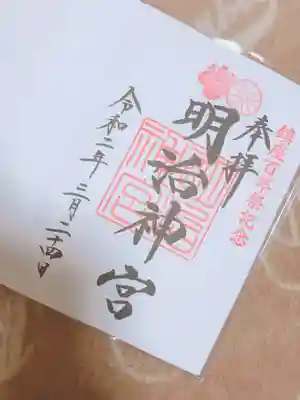 鎮座百年祭記念
奉拝
明治神宮
令和二年三月二十四日